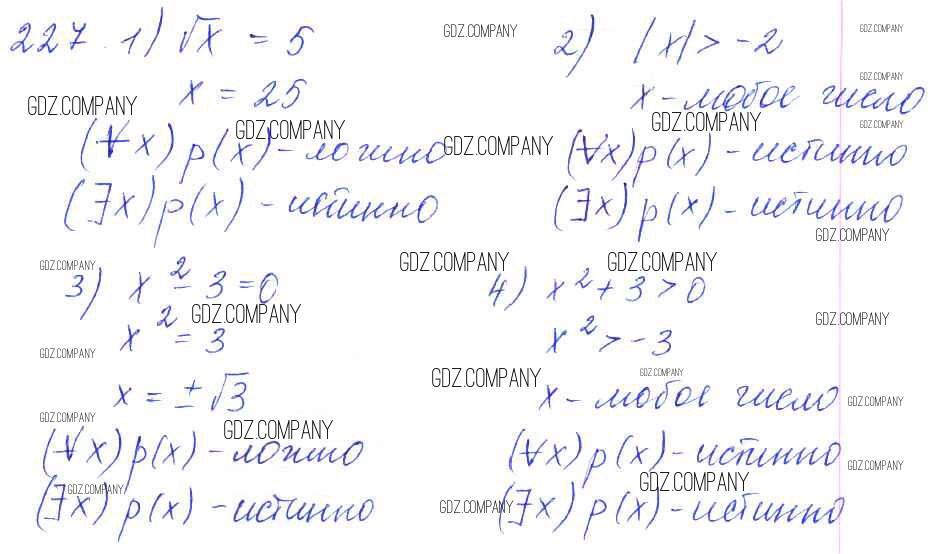 227. 1) √x = 5
GDZ.COMPANY
2) |x| > -2
GDZ.COMPANY
GDZ.COMPANY
x = 25
GDZ.COMPANY
x - любое число
GDZ.COMPANY
GDZ.COMPANY
GDZ.COMPANY
(∀x) p(x) - ложно
GDZ.COMPANY
(∀x) p(x) - истинно
(∃x) p(x) - истинно
(∃x) p(x) - истинно
GDZ.COMPANY
GDZ.COMPANY
GDZ.COMPANY
GDZ.COMPANY
3) x² - 3 = 0
4) x² + 3 > 0
GDZ.COMPANY
GDZ.COMPANY
x² = 3
x² > -3
GDZ.COMPANY
GDZ.COMPANY
GDZ.COMPANY
x = ± √3
x - любое число
GDZ.COMPANY
GDZ.COMPANY
GDZ.COMPANY
(∀x) p(x) - ложно
(∀x) p(x) - истинно
GDZ.COMPANY
GDZ.COMPANY
GDZ.COMPANY
(∃x) p(x) - истинно
GDZ.COMPANY
(∃x) p(x) - истинно